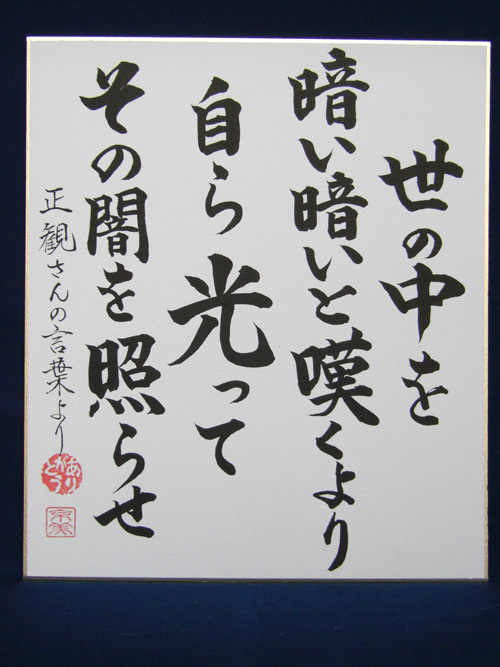 世の中を
暗い暗いと嘆くより
自ら光って
その闇を照らせ
正観さんの言葉より
ありがとう